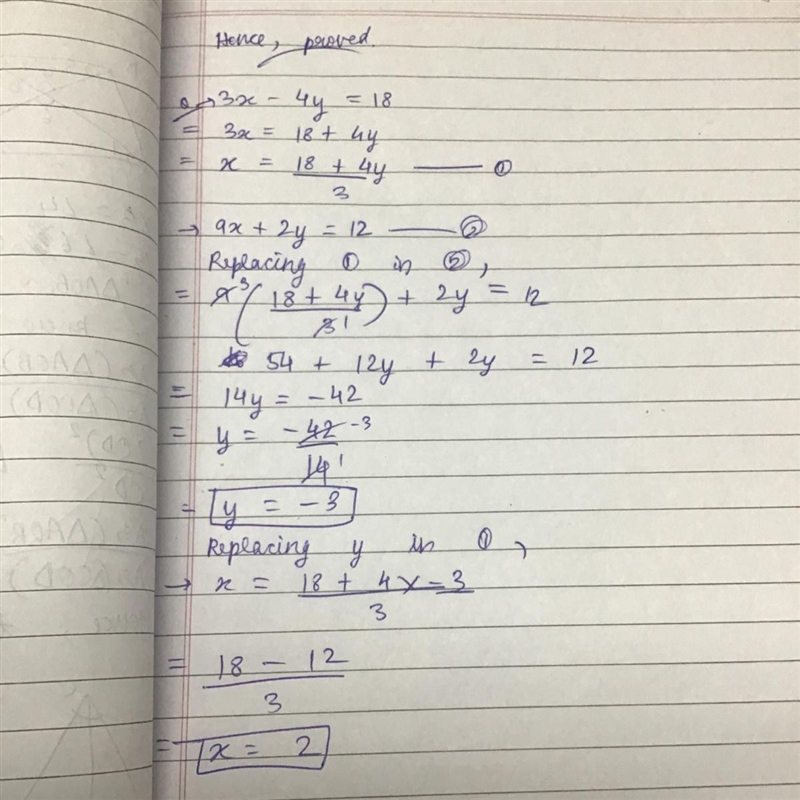 Hence, proved.
Q → 3x - 4y = 18
= 3x = 18 + 4y
= x = 18 + 4y / 3 —— ①
→ 9x + 2y = 12 —— ②
Replacing ① in ②,
= 9³ ( 18 + 4y / 3 1 ) + 2y = 12
54 + 12y + 2y = 12
= 14y = -42
= y = -42 -3 / 14 1
= y = -3
Replacing y in ①,
→ x = 18 + 4x-3 / 3
= 18 - 12 / 3
= x = 2